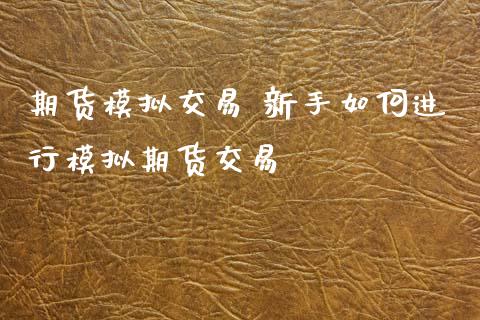 期货模拟交易 新手如何进
行模拟期货交易